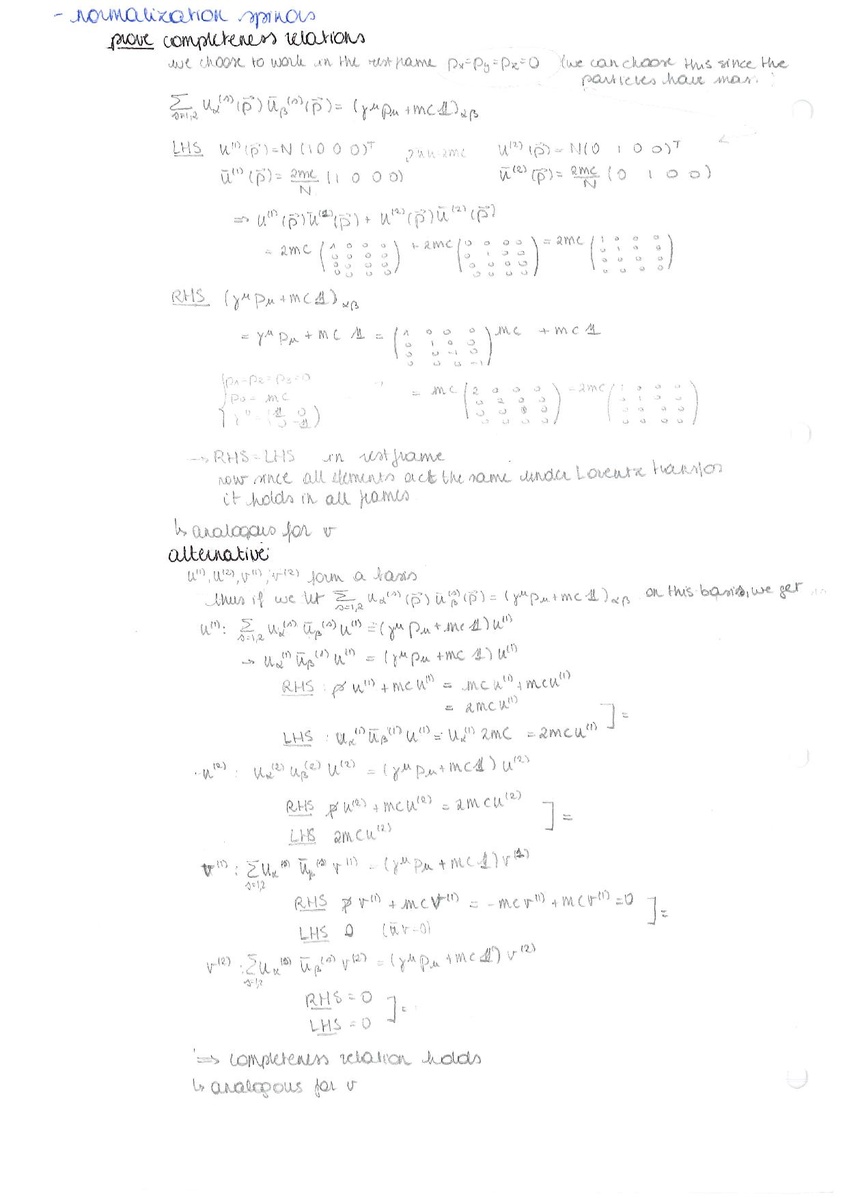 - normalization spinors
prove completeness relations
we choose to work in the restframe px=py=pz=0 (we can choose this since the
particles have mass)
∑_{s=1,2} u_α^{(s)}(p⃗) ū_β^{(s)}(p⃗) = (γ^μ p_μ + mc 𝟙)_{αβ}
LHS u^{(1)}(p⃗) = N (1 0 0 0)^T u^{(2)}(p⃗) = N(0 1 0 0)^T
ū^{(1)}(p⃗) = 2mc/N (1 0 0 0) ū^{(2)}(p⃗) = 2mc/N (0 1 0 0)
⇒ u^{(1)}(p⃗) ū^{(1)}(p⃗) + u^{(2)}(p⃗) ū^{(2)}(p⃗)
= 2mc (1 0 0 0 / 0 0 0 0 / 0 0 0 0 / 0 0 0 0) + 2mc (0 0 0 0 / 0 1 0 0 / 0 0 0 0 / 0 0 0 0) = 2mc (1 0 0 0 / 0 1 0 0 / 0 0 0 0 / 0 0 0 0)
RHS (γ^μ p_μ + mc 𝟙)_{αβ}
= γ^μ p_μ + mc 𝟙 = (1 0 0 0 / 0 1 0 0 / 0 0 -1 0 / 0 0 0 -1) mc + mc 𝟙
{px=pz=py=0
p0 = mc = mc (2 0 0 0 / 0 2 0 0 / 0 0 0 0 / 0 0 0 0) = 2mc (1 0 0 0 / 0 1 0 0 / 0 0 0 0 / 0 0 0 0)
γ^0 = (𝟙 0 / 0 -𝟙)
→ RHS = LHS in restframe
now since all elements act the same under Lorentz transfos
it holds in all frames
↳ analogous for v
alternative:
u^{(1)}, u^{(2)}, v^{(1)}, v^{(2)} form a basis
thus if we let ∑_{s=1,2} u_α^{(s)}(p⃗) ū_β^{(s)}(p⃗) = (γ^μ p_μ + mc 𝟙)_{αβ} on this basis, we get
u^{(1)}: ∑_{s=1,2} u_α^{(s)} ū_β^{(s)} u^{(1)} = (γ^μ p_μ + mc 𝟙) u^{(1)}
→ u_α^{(1)} ū_β^{(1)} u^{(1)} = (γ^μ p_μ + mc 𝟙) u^{(1)}
RHS : p̸ u^{(1)} + mc u^{(1)} = mc u^{(1)} + mc u^{(1)}
= 2mc u^{(1)}
LHS : u_α^{(1)} ū_β^{(1)} u^{(1)} = u_α^{(1)} 2mc = 2mc u^{(1)} ] =
u^{(2)}: u_α^{(2)} u_β^{(2)} u^{(2)} = (γ^μ p_μ + mc 𝟙) u^{(2)}
RHS p̸ u^{(2)} + mc u^{(2)} = 2mc u^{(2)}
LHS 2mc u^{(2)} ] =
v^{(1)}: ∑_{s=1,2} u_α^{(s)} ū_β^{(s)} v^{(1)} = (γ^μ p_μ + mc 𝟙) v^{(1)}
RHS p̸ v^{(1)} + mc v^{(1)} = -mc v^{(1)} + mc v^{(1)} = 0
LHS 0 (ūv=0) ] =
v^{(2)}: ∑_{s=1,2} u_α^{(s)} ū_β^{(s)} v^{(2)} = (γ^μ p_μ + mc 𝟙) v^{(2)}
RHS = 0
LHS = 0 ] =
⇒ completeness relation holds
↳ analogous for v